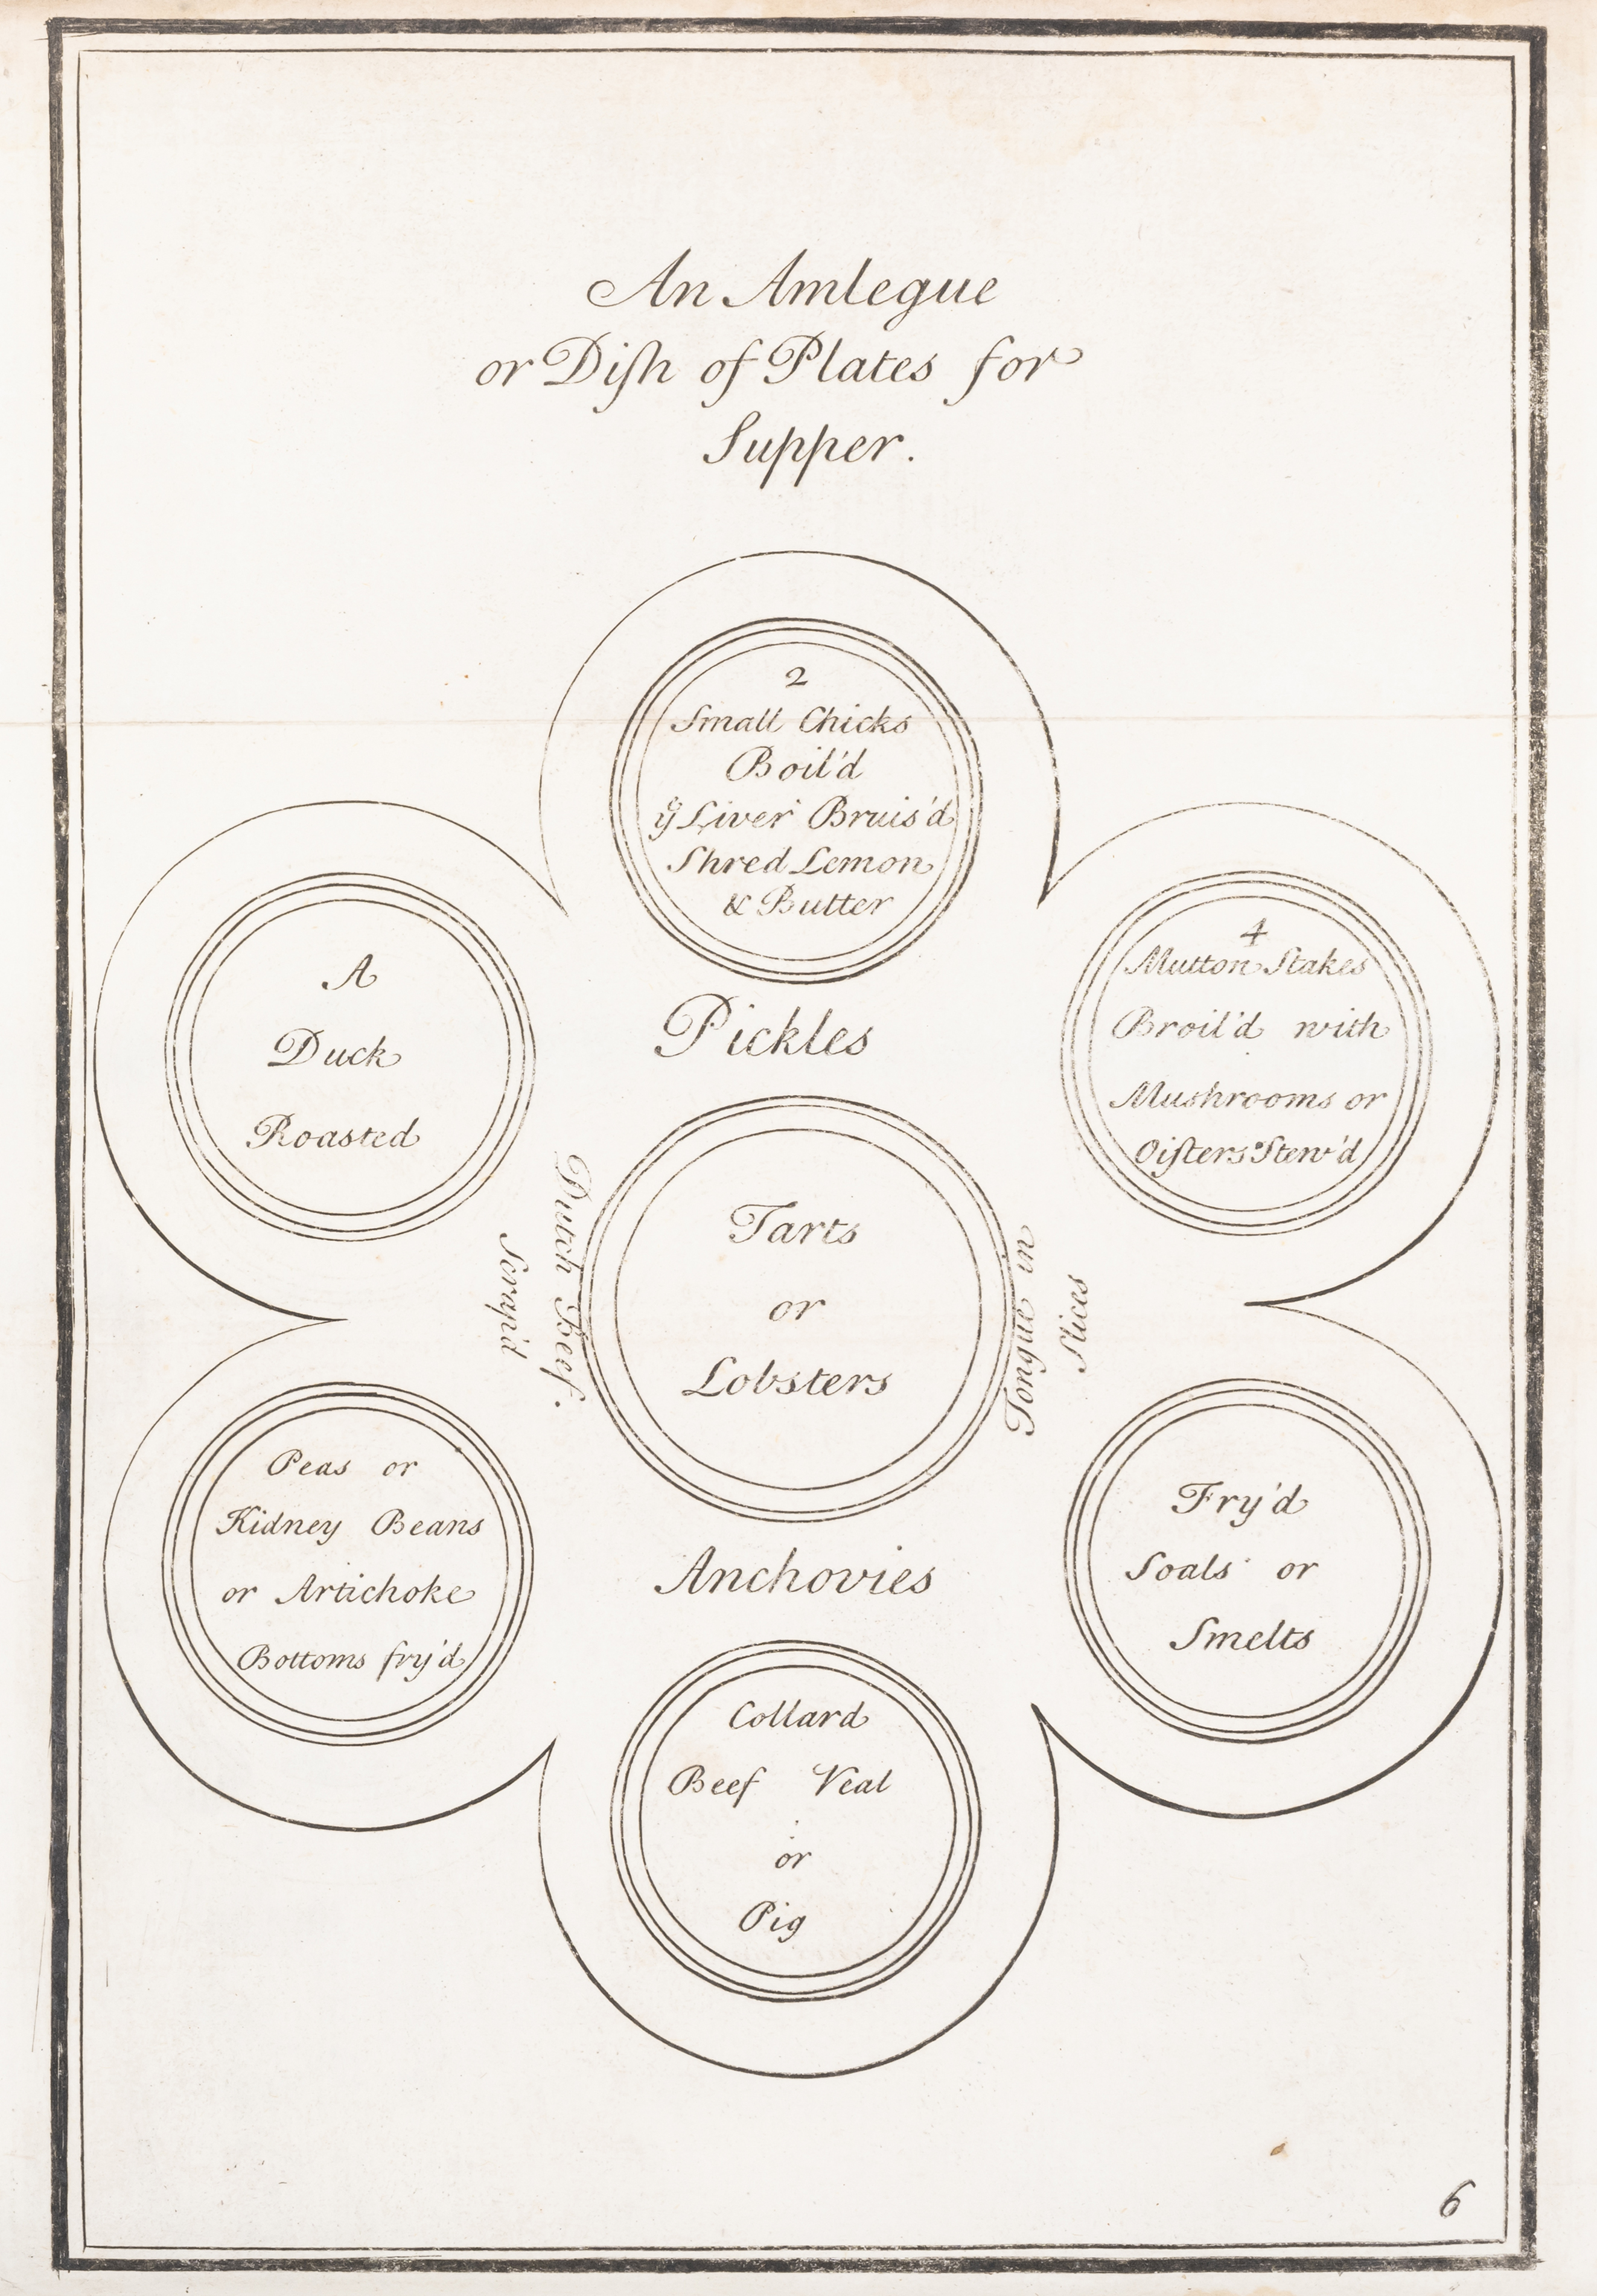 An Amlegue
or Diſh of Plates for
Supper.
2
Small Chicks
Boil'd
yͤ Liver Bruis'd
Shred Lemon
& Butter
A
Duck
Roasted
Pickles
4
Mutton Stakes
Broil'd with
Mushrooms or
Oiſters Stew'd
Dutch Beef.
Scrap'd
Tarts
or
Lobsters
Tongue in
Slices
Peas or
Kidney Beans
or Artichoke
Bottoms fry'd
Anchovies
Fry'd
Soals or
Smelts
Collard
Beef Veal
or
Pig
6